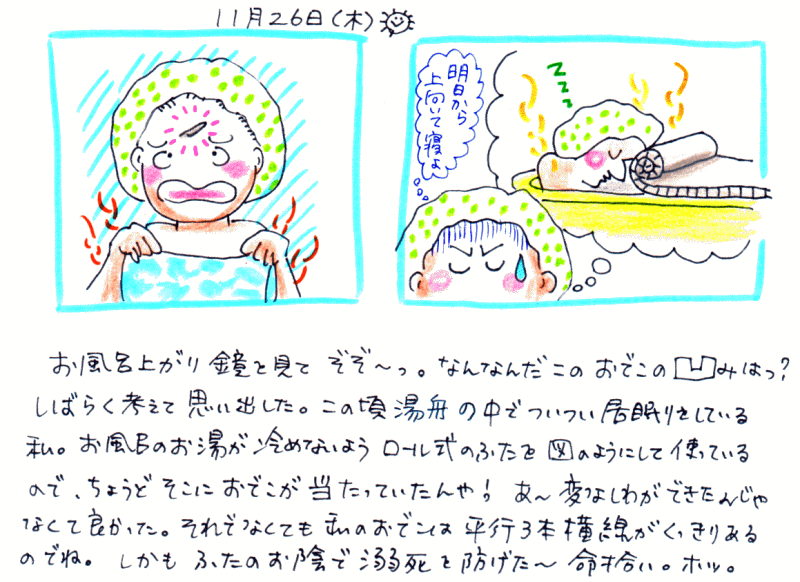 11月26日(木)
明日から
上向いて寝よ
zzz
お風呂上がり鏡を見てぞぞ〜っ。なんなんだこのおでこの凹みはっ?
しばらく考えて思い出した。この頃湯舟の中でついつい居眠りをしている
私。お風呂のお湯が冷めてないようロール式のふたを図のようにして使っている
ので、ちょうどそこにおでこが当たっていたんや!あ〜変なしわができたんじゃ
なくて良かった。それでなくても私のおでこは平行3本横線がくっきりある
のでね。しかもふたのお陰で溺死を防げた〜命拾い。ホッ。